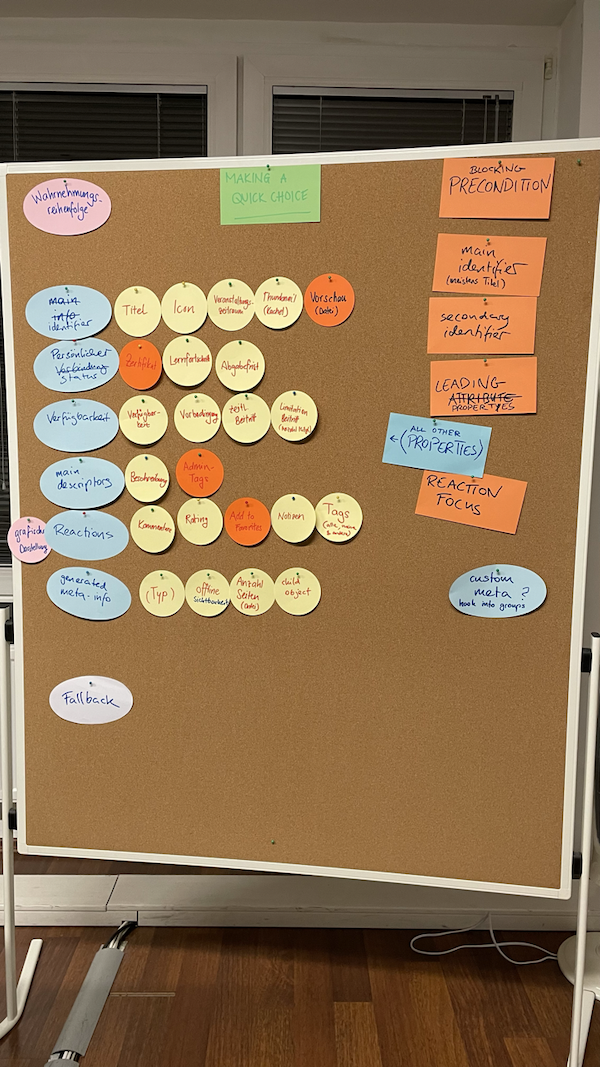 Wahrnehmungs-
reihenfolge
MAKING A
QUICK CHOICE
BLOCKING
PRECONDITION
main
identifier
(meistens Titel)
secondary
identifier
LEADING
ATTRIBUTE
PROPERTYES
← (ALL OTHER
PROPERTIES)
REACTION
FOCUS
main
info
identifier
Titel
Icon
Veranstaltungs-
zeitraum
(Kachel)
Vorschau
(Datei)
Persönlicher
Verbindung
status
Zertifikat
Lernfortschritt
Abgabefrist
Verfügbarkeit
Verfügbar-
keit
Vorbedingung
zeitl.
Beitritt
Limitation
Beitritt
main
descriptors
Beschreibung
Admin-
Tags
grafische
Darstellung
Reactions
Kommentare
Rating
Add to
Favorites
Notizen
Tags
(alle, meine,
& andere)
generated
meta-info
(Typ)
offline
Sichtbarkeit
Anzahl
Seiten
(Datei)
child
object
custom
meta ?
hook into groups
Fallback